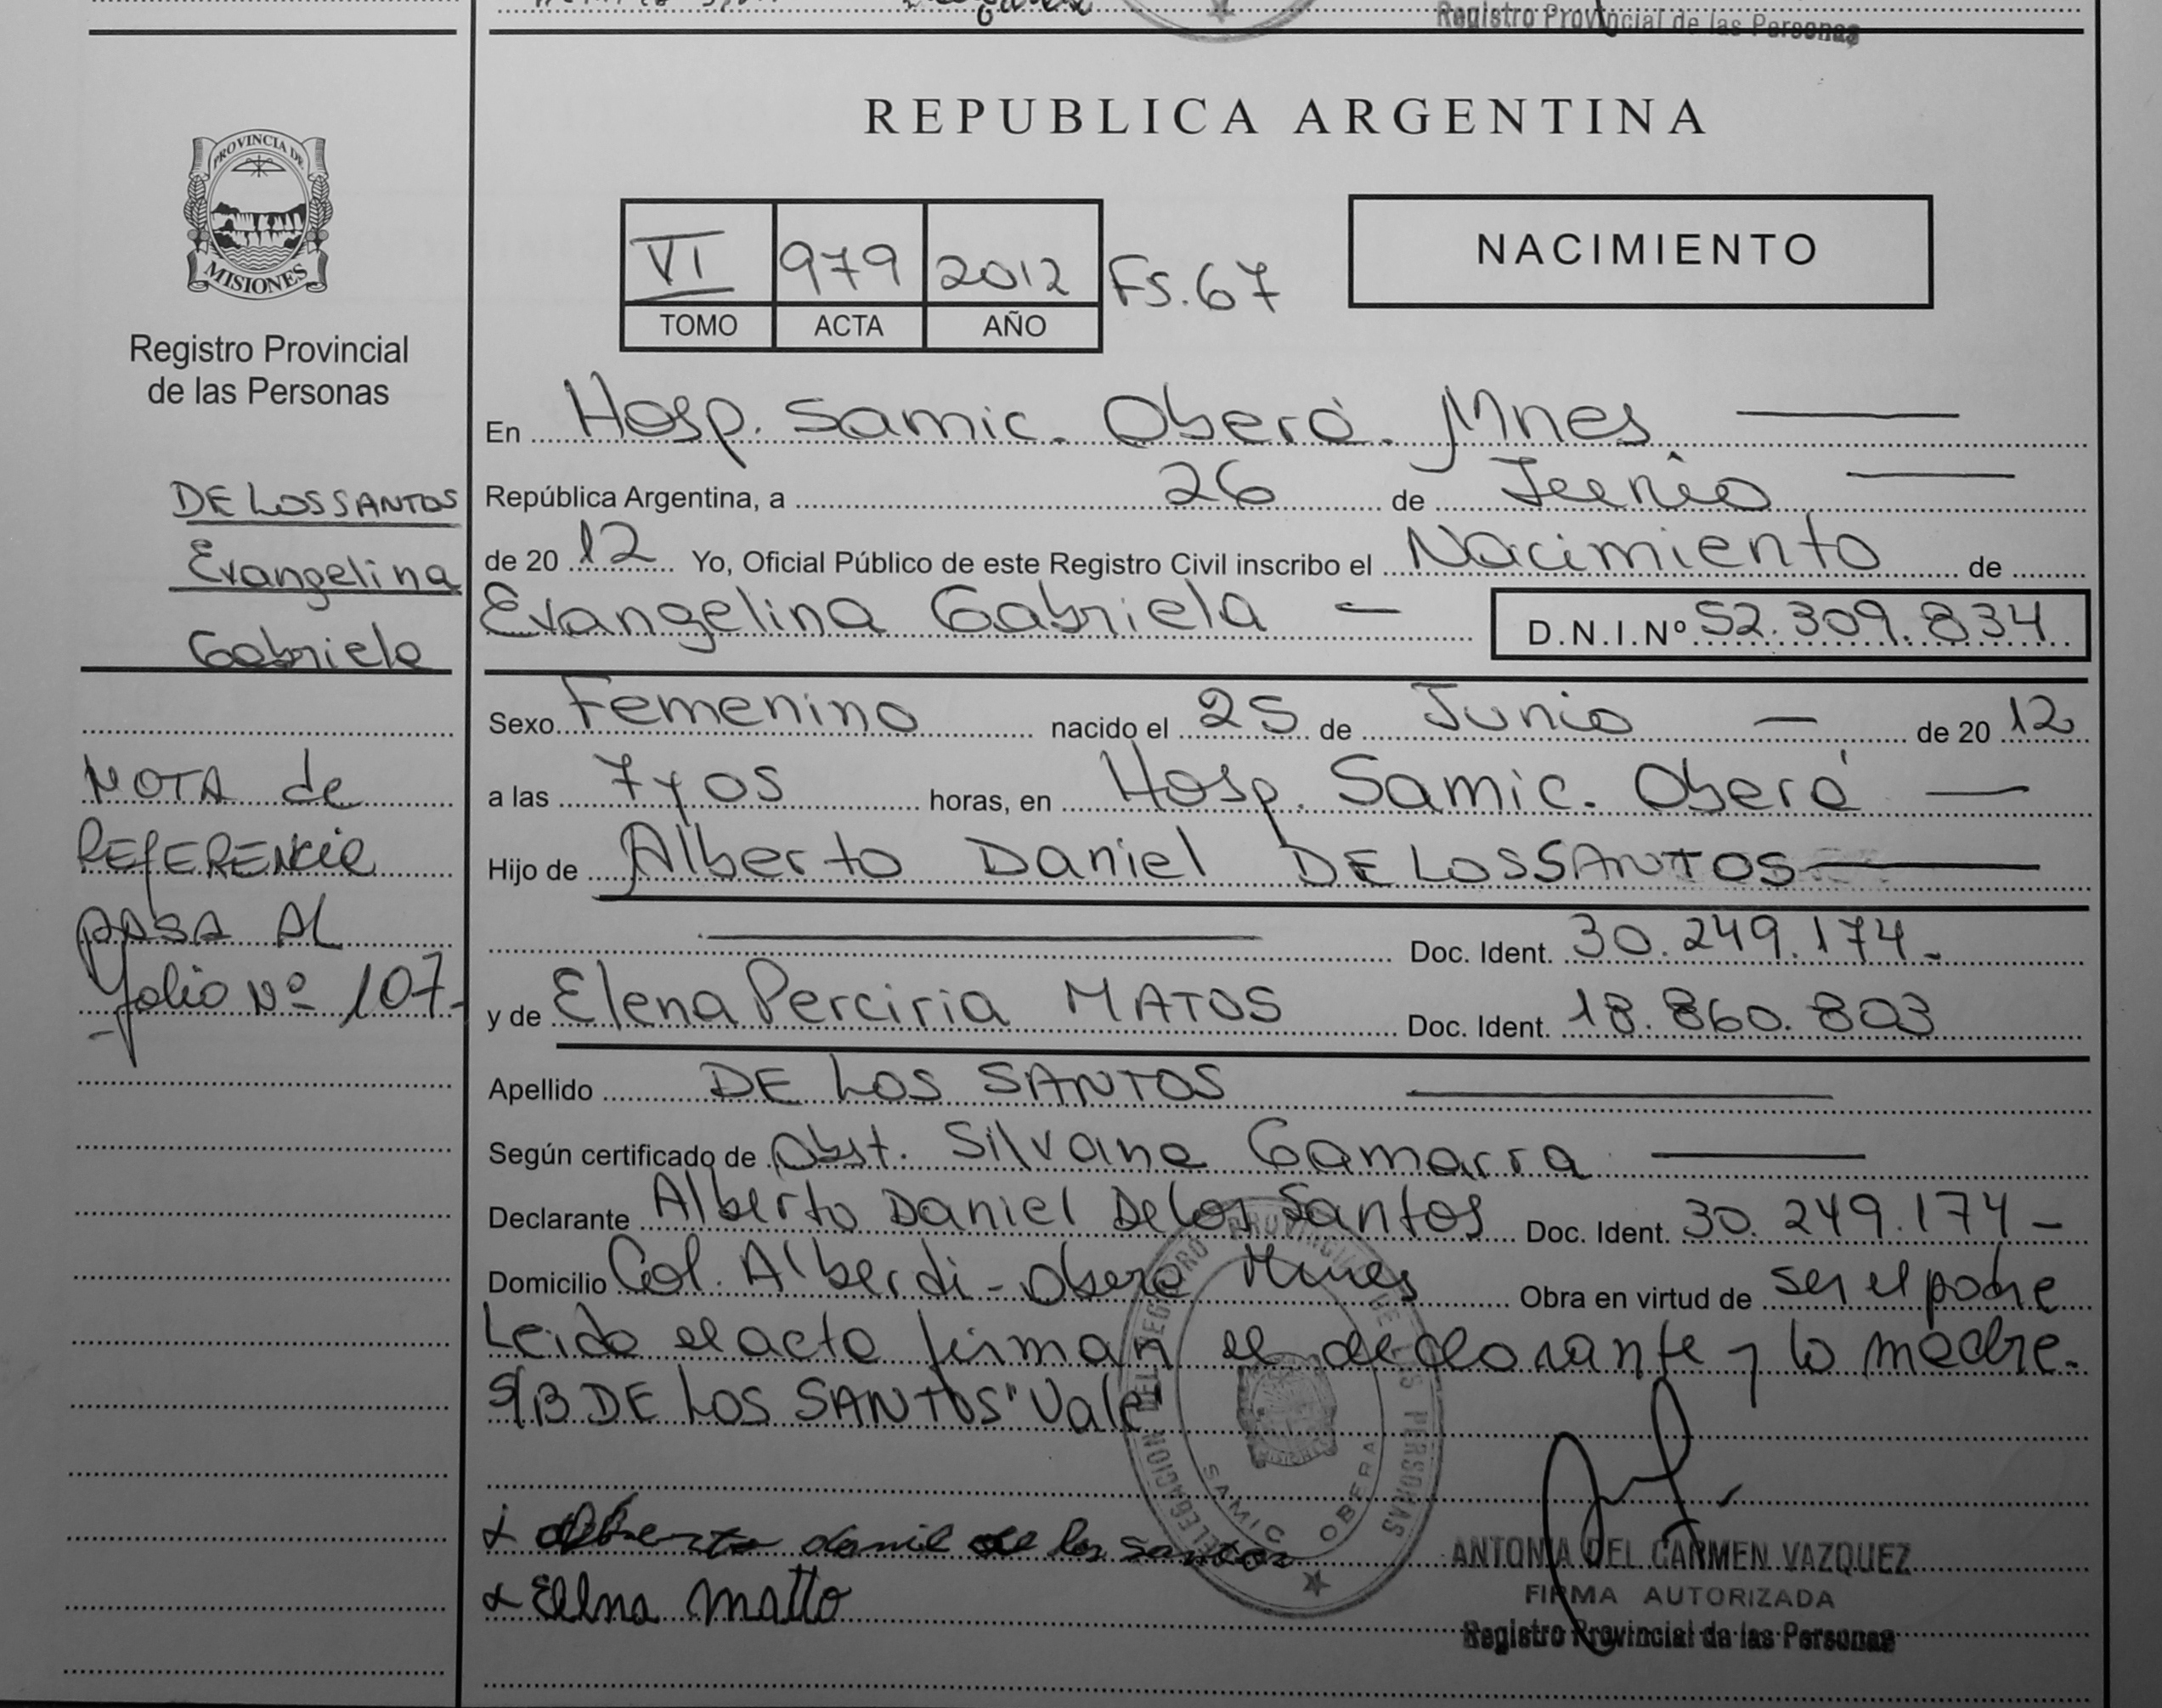 Registro Provincial de las Personas
REPUBLICA ARGENTINA
PROVINCIA DE
MISIONES
Registro Provincial
de las Personas
VI 979 2012 Fs. 67
TOMO ACTA AÑO
NACIMIENTO
DE LOS SANTOS
Evangelina
Gabriela
NOTA de
REFERENCIA
PASA AL
folio Nº 107.-
En Hosp. Samic. Oberá. Mnes
República Argentina, a 26 de Junio
de 20 12 Yo, Oficial Público de este Registro Civil inscribo el Nacimiento de
Evangelina Gabriela — D.N.I.Nº 52.309.834
Sexo Femenino nacido el 25 de Junio — de 20 12
a las 7 y 05 horas, en Hosp. Samic. Oberá —
Hijo de Alberto Daniel DE LOS SANTOS
Doc. Ident. 30.249.174.-
y de Elena Perciria MATOS Doc. Ident. 18.860.803
Apellido DE LOS SANTOS
Según certificado de Obst. Silvana Gamarra
Declarante Alberto Daniel De los Santos Doc. Ident. 30.249.174 -
Domicilio Col. Alberdi - Oberá Mnes Obra en virtud de ser el padre
Leida el acta firman el declarante y la madre.
S/B DE LOS SANTOS "Vale"
DELEGACION DEL REGISTRO PROVINCIAL DE LAS PERSONAS
SAMIC OBERA
alberto daniel de los santos
Elena Matto
ANTONIA DEL CARMEN VAZQUEZ
FIRMA AUTORIZADA
Registro Provincial de las Personas